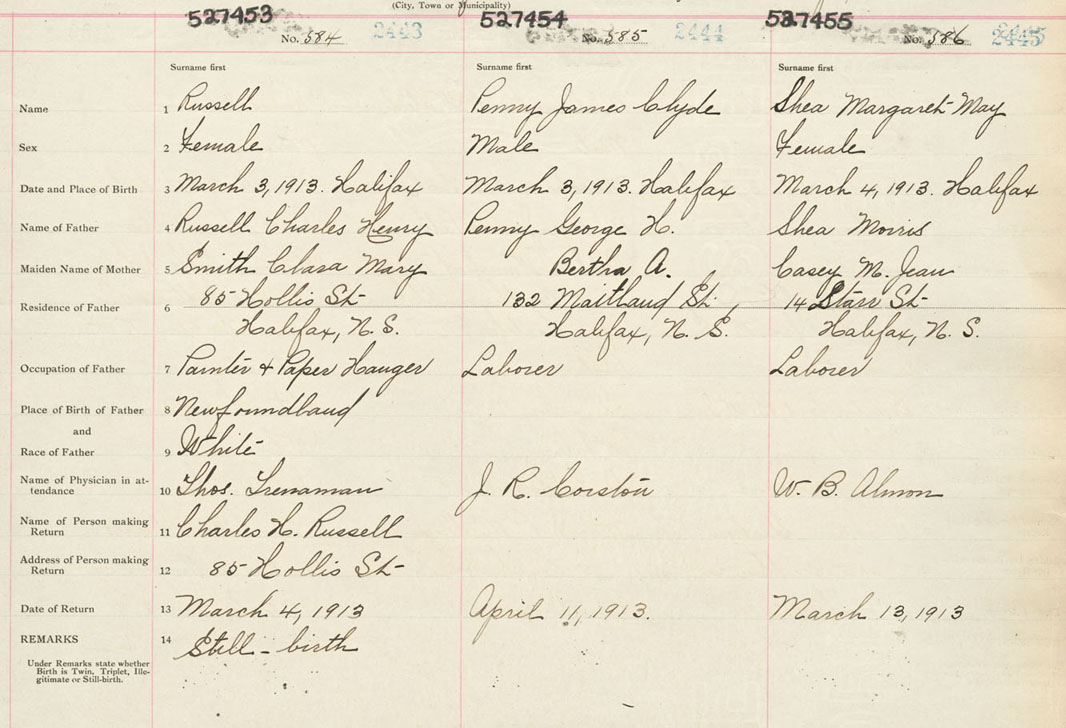 (City, Town or Municipality)
527453 527454 527455
No. 584 2443 No. 585 2444 No. 586 2445
Surname first Surname first Surname first
Name 1 Russell Penny James Clyde Shea Margaret May
Sex 2 Female Male Female
Date and Place of Birth 3 March 3, 1913. Halifax March 3, 1913. Halifax March 4, 1913. Halifax
Name of Father 4 Russell Charles Henry Penny George H. Shea Morris
Maiden Name of Mother 5 Smith Clara Mary Bertha A. Casey M. Jean
Residence of Father 6 85 Hollis St 132 Maitland St. 14 Starr St
Halifax, N. S. Halifax, N. S. Halifax, N. S.
Occupation of Father 7 Painter + Paper Hanger Laborer Laborer
Place of Birth of Father 8 Newfoundland
and
Race of Father 9 White
Name of Physician in at-
tendance 10 Thos. Trenaman J. R. Corston W. B. Almon
Name of Person making
Return 11 Charles H. Russell
Address of Person making
Return 12 85 Hollis St
Date of Return 13 March 4, 1913 April 11, 1913. March 13, 1913
REMARKS 14 Still-birth
Under Remarks state whether
Birth is Twin, Triplet, Ille-
gitimate or Still-birth.